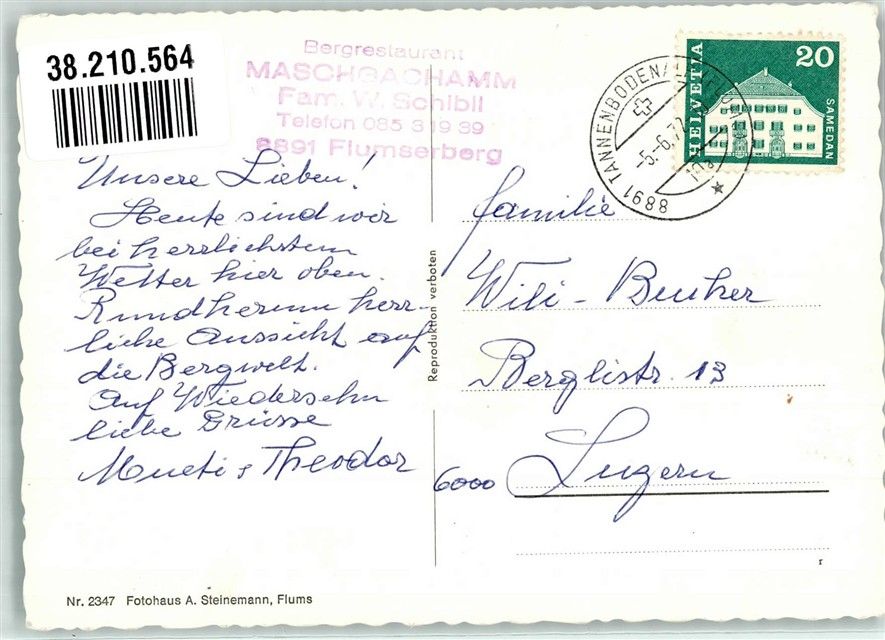 38.210.564
Bergrestaurant
MASCHGACHAMM
Fam. W. Schibli
Telefon 085 3 19 39
8891 Flumserberg
HELVETIA
20
SAMEDAN
8891 TANNENBODEN
-5.-6.7
Unsere Lieben!
Heute sind wir
bei herrlichstem
Wetter hier oben.
Rundherum herr-
liche Aussicht auf
die Bergwelt.
Auf Wiedersehn
liebe Grüsse
Mueti & Theodor
Reproduktion verboten
Familie
Wili - Bucher
Berglistr. 13
6000 Luzern
Nr. 2347 Fotohaus A. Steinemann, Flums